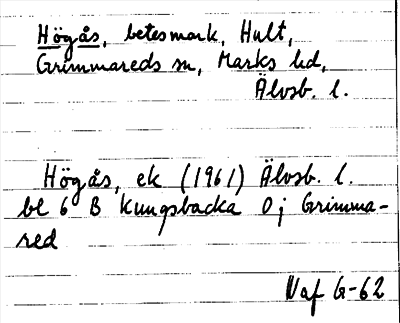 Högås, betesmark, Hult,
Grimmareds sn, Marks hd,
Älvsb. l.
Högås, ek (1961) Älvsb. l.
bl 6 B Kungsbacka 0 j Grimma-
red
Naf G-62